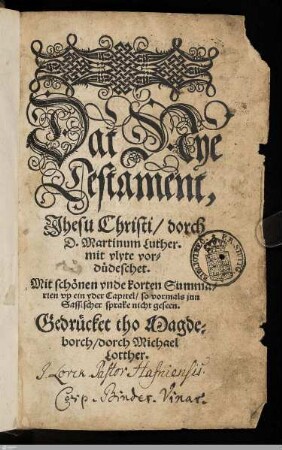 Dat Nye
Testament,
Jhesu Christi/ dorch
D. Martinum Luther.
mit vlyte vor-
düdeschet.
Mit schönen vnde korten Summa-
rien vp ein yder Capitel/ so vormals jnn
Sassischer sprake nicht geseen.
Gedrücket tho Magde-
borch/ dorch Michael
Lotther.
J. Lorck Pastor Hafniensis.